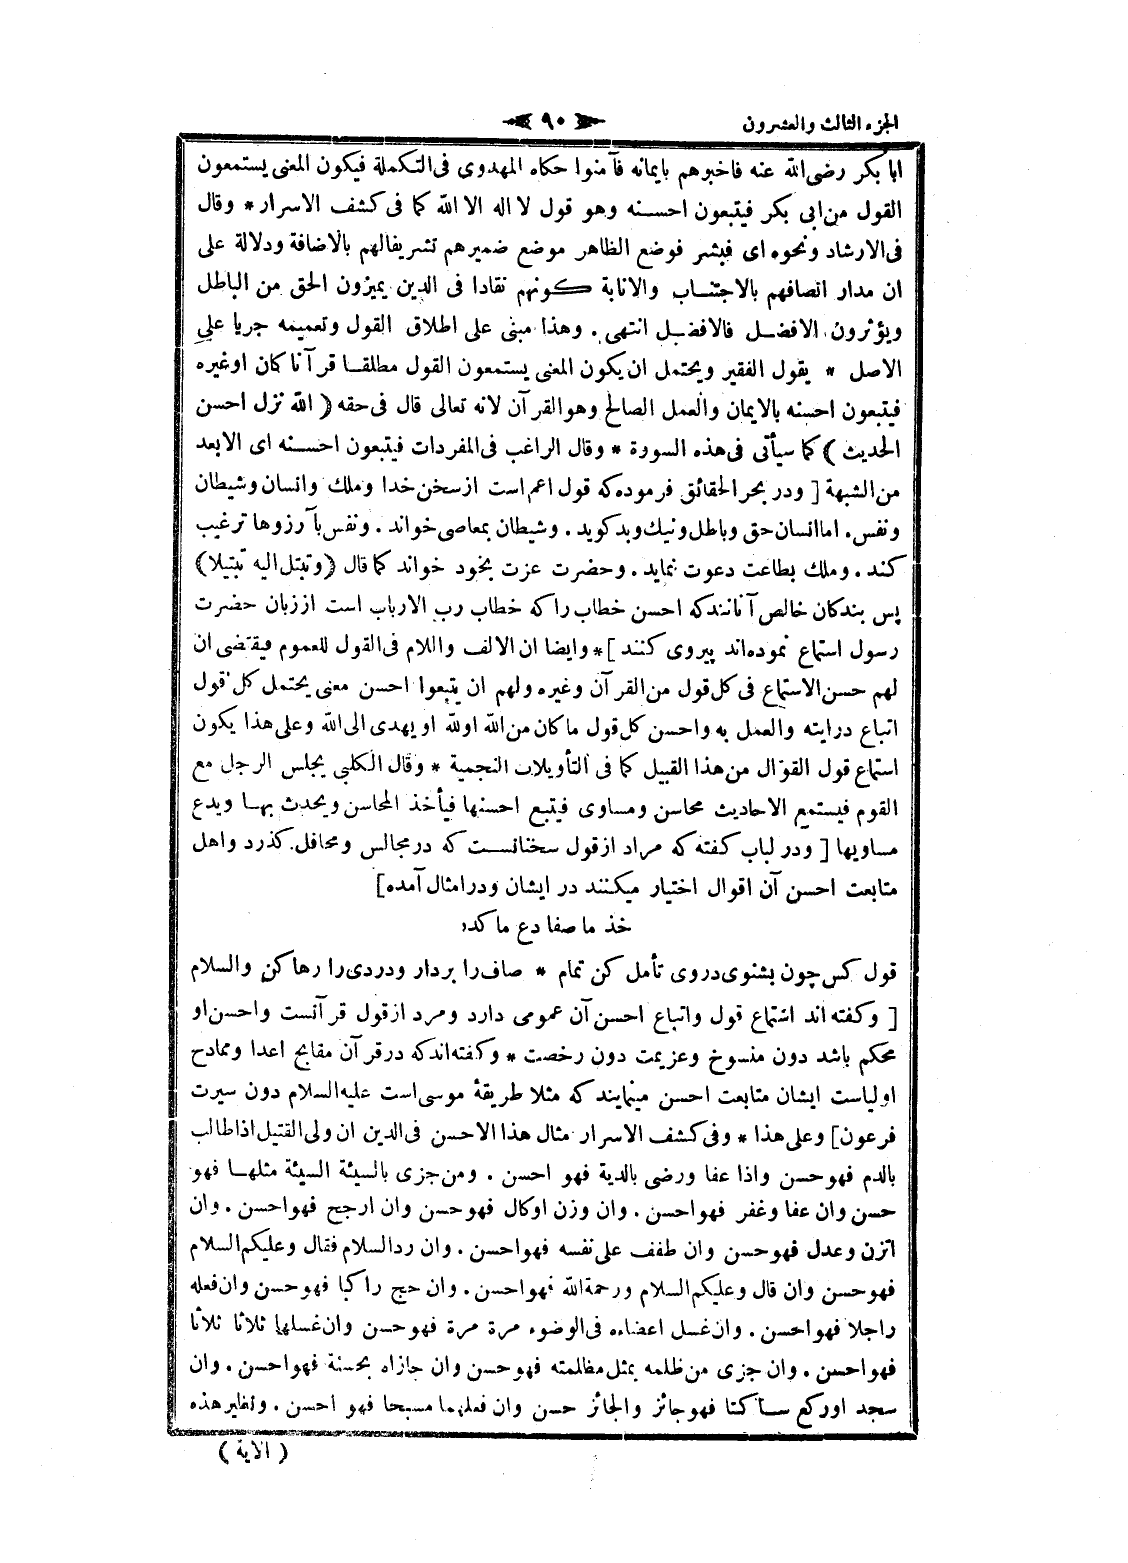 الجزء الثالث والعشرون
٩٠
ابا بكر رضى الله عنه فاخبرهم بايمانه فآمنوا حكاه المهدوى فى التكملة فيكون المعنى يستمعون
القول من ابى بكر فيتبعون احسنه وهو قول لا اله الا الله كما فى كشف الاسرار * وقال
فى الارشاد ونحوه اى فبشر فوضع الظاهر موضع ضميرهم تشريفا لهم بالاضافة ودلالة على
ان مدار اتصافهم بالاجتناب والانابة كونهم نقادا فى الدين يميزون الحق من الباطل
ويؤثرون الافضل فالافضل انتهى . وهذا مبنى على اطلاق القول وتعميمه جريا على
الاصل * يقول الفقير ويحتمل ان يكون المعنى يستمعون القول مطلقا قرآنا كان اوغيره
فيتبعون احسنه بالايمان والعمل الصالح وهوالقرآن لانه تعالى قال فى حقه ( الله نزل احسن
الحديث ) كما سيأتى فى هذه السورة * وقال الراغب فى المفردات فيتبعون احسنه اى الابعد
من الشبهة [ ودر بحر الحقائق فرموده كه قول اعم است ازسخن خدا وملك وانسان وشيطان
ونفس. اما انسان حق وباطل ونيك وبد كويد . وشيطان بمعاصى خواند . ونفس بآرزوها ترغيب
كند . وملك بطاعت دعوت نمايد . وحضرت عزت بخود خواند كما قال ( وتبتل اليه تبتيلا )
پس بندكان خالص آنانندكه احسن خطاب را كه خطاب رب الارباب است اززبان حضرت
رسول استماع نموده اند پيروى كنند ] * وايضا ان الالف واللام فى القول للعموم فيقتضى ان
لهم حسن الاستماع فى كل قول من القرآن وغيره ولهم ان يتبعوا احسن معنى يحتمل كل قول
اتباع درايته والعمل به واحسن كل قول ماكان من الله اولله او يهدى الى الله وعلى هذا يكون
استماع قول القوّال من هذا القبيل كما فى التأويلات النجمية * وقال الكلبى يجلس الرجل مع
القوم فيستمع الاحاديث محاسن ومساوى فيتبع احسنها فيأخذ المحاسن ويحدث بها ويدع
مساويها [ ودر لباب كفته كه مراد ازقول سخنانست كه درمجالس ومحافل كذرد واهل
متابعت احسن آن اقوال اختيار ميكنند در ايشان ودرامثال آمده ]
خذ ما صفا دع ما كدر
قول كس چون بشنوى دروى تأمل كن تمام * صاف را بردار ودردى را رها كن والسلام
[ وكفته اند استماع قول واتباع احسن آن عمومى دارد ومرد ازقول قرآنست واحسن او
محكم باشد دون منسوخ وعزيمت دون رخصت * وكفته اندكه درقرآن مقابح اعدا وممادح
اولياست ايشان متابعت احسن مينمايند كه مثلا طريقۀ موسى است عليه السلام دون سيرت
فرعون] وعلى هذا * وفى كشف الاسرار مثال هذا الاحسن فى الدين ان ولى القتيل اذا طالب
بالدم فهو حسن واذا عفا ورضى بالدية فهو احسن . ومن جزى بالسيئة السيئة مثلها فهو
حسن وان عفا وغفر فهو احسن . وان وزن اوكال فهو حسن وان ارجح فهو احسن . وان
اتزن وعدل فهو حسن وان طفف على نفسه فهو احسن . وان رد السلام فقال وعليكم السلام
فهو حسن وان قال وعليكم السلام ورحمة الله فهو احسن . وان حج راكبا فهو حسن وان فعله
راجلا فهو احسن . وان غسل اعضاءه فى الوضوء مرة مرة فهو حسن وان غسلها ثلاثا ثلاثا
فهو احسن . وان جزى من ظلمه بمثل مظلمته فهو حسن وان جازاه بحسنة فهو احسن . وان
سجد اوركع ساكتا فهو جائز والجائز حسن وان فعلهما مسبحا فهو احسن . ونظير هذه
( الآية )